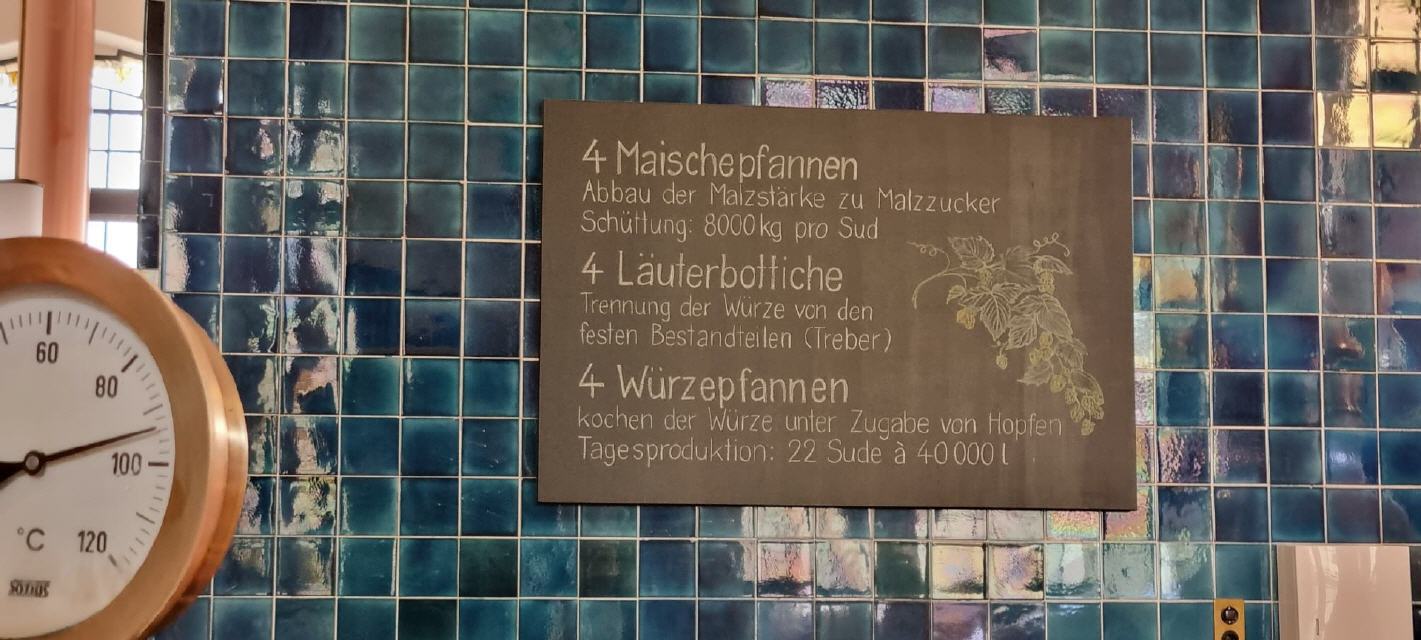 4 Maischepfannen
Abbau der Malzstärke zu Malzzucker
Schüttung: 8000 kg pro Sud
4 Läuterbottiche
Trennung der Würze von den
festen Bestandteilen (Treber)
4 Würzepfannen
kochen der Würze unter Zugabe von Hopfen
Tagesproduktion: 22 Sude à 40 000 l
60
80
100
120
°C